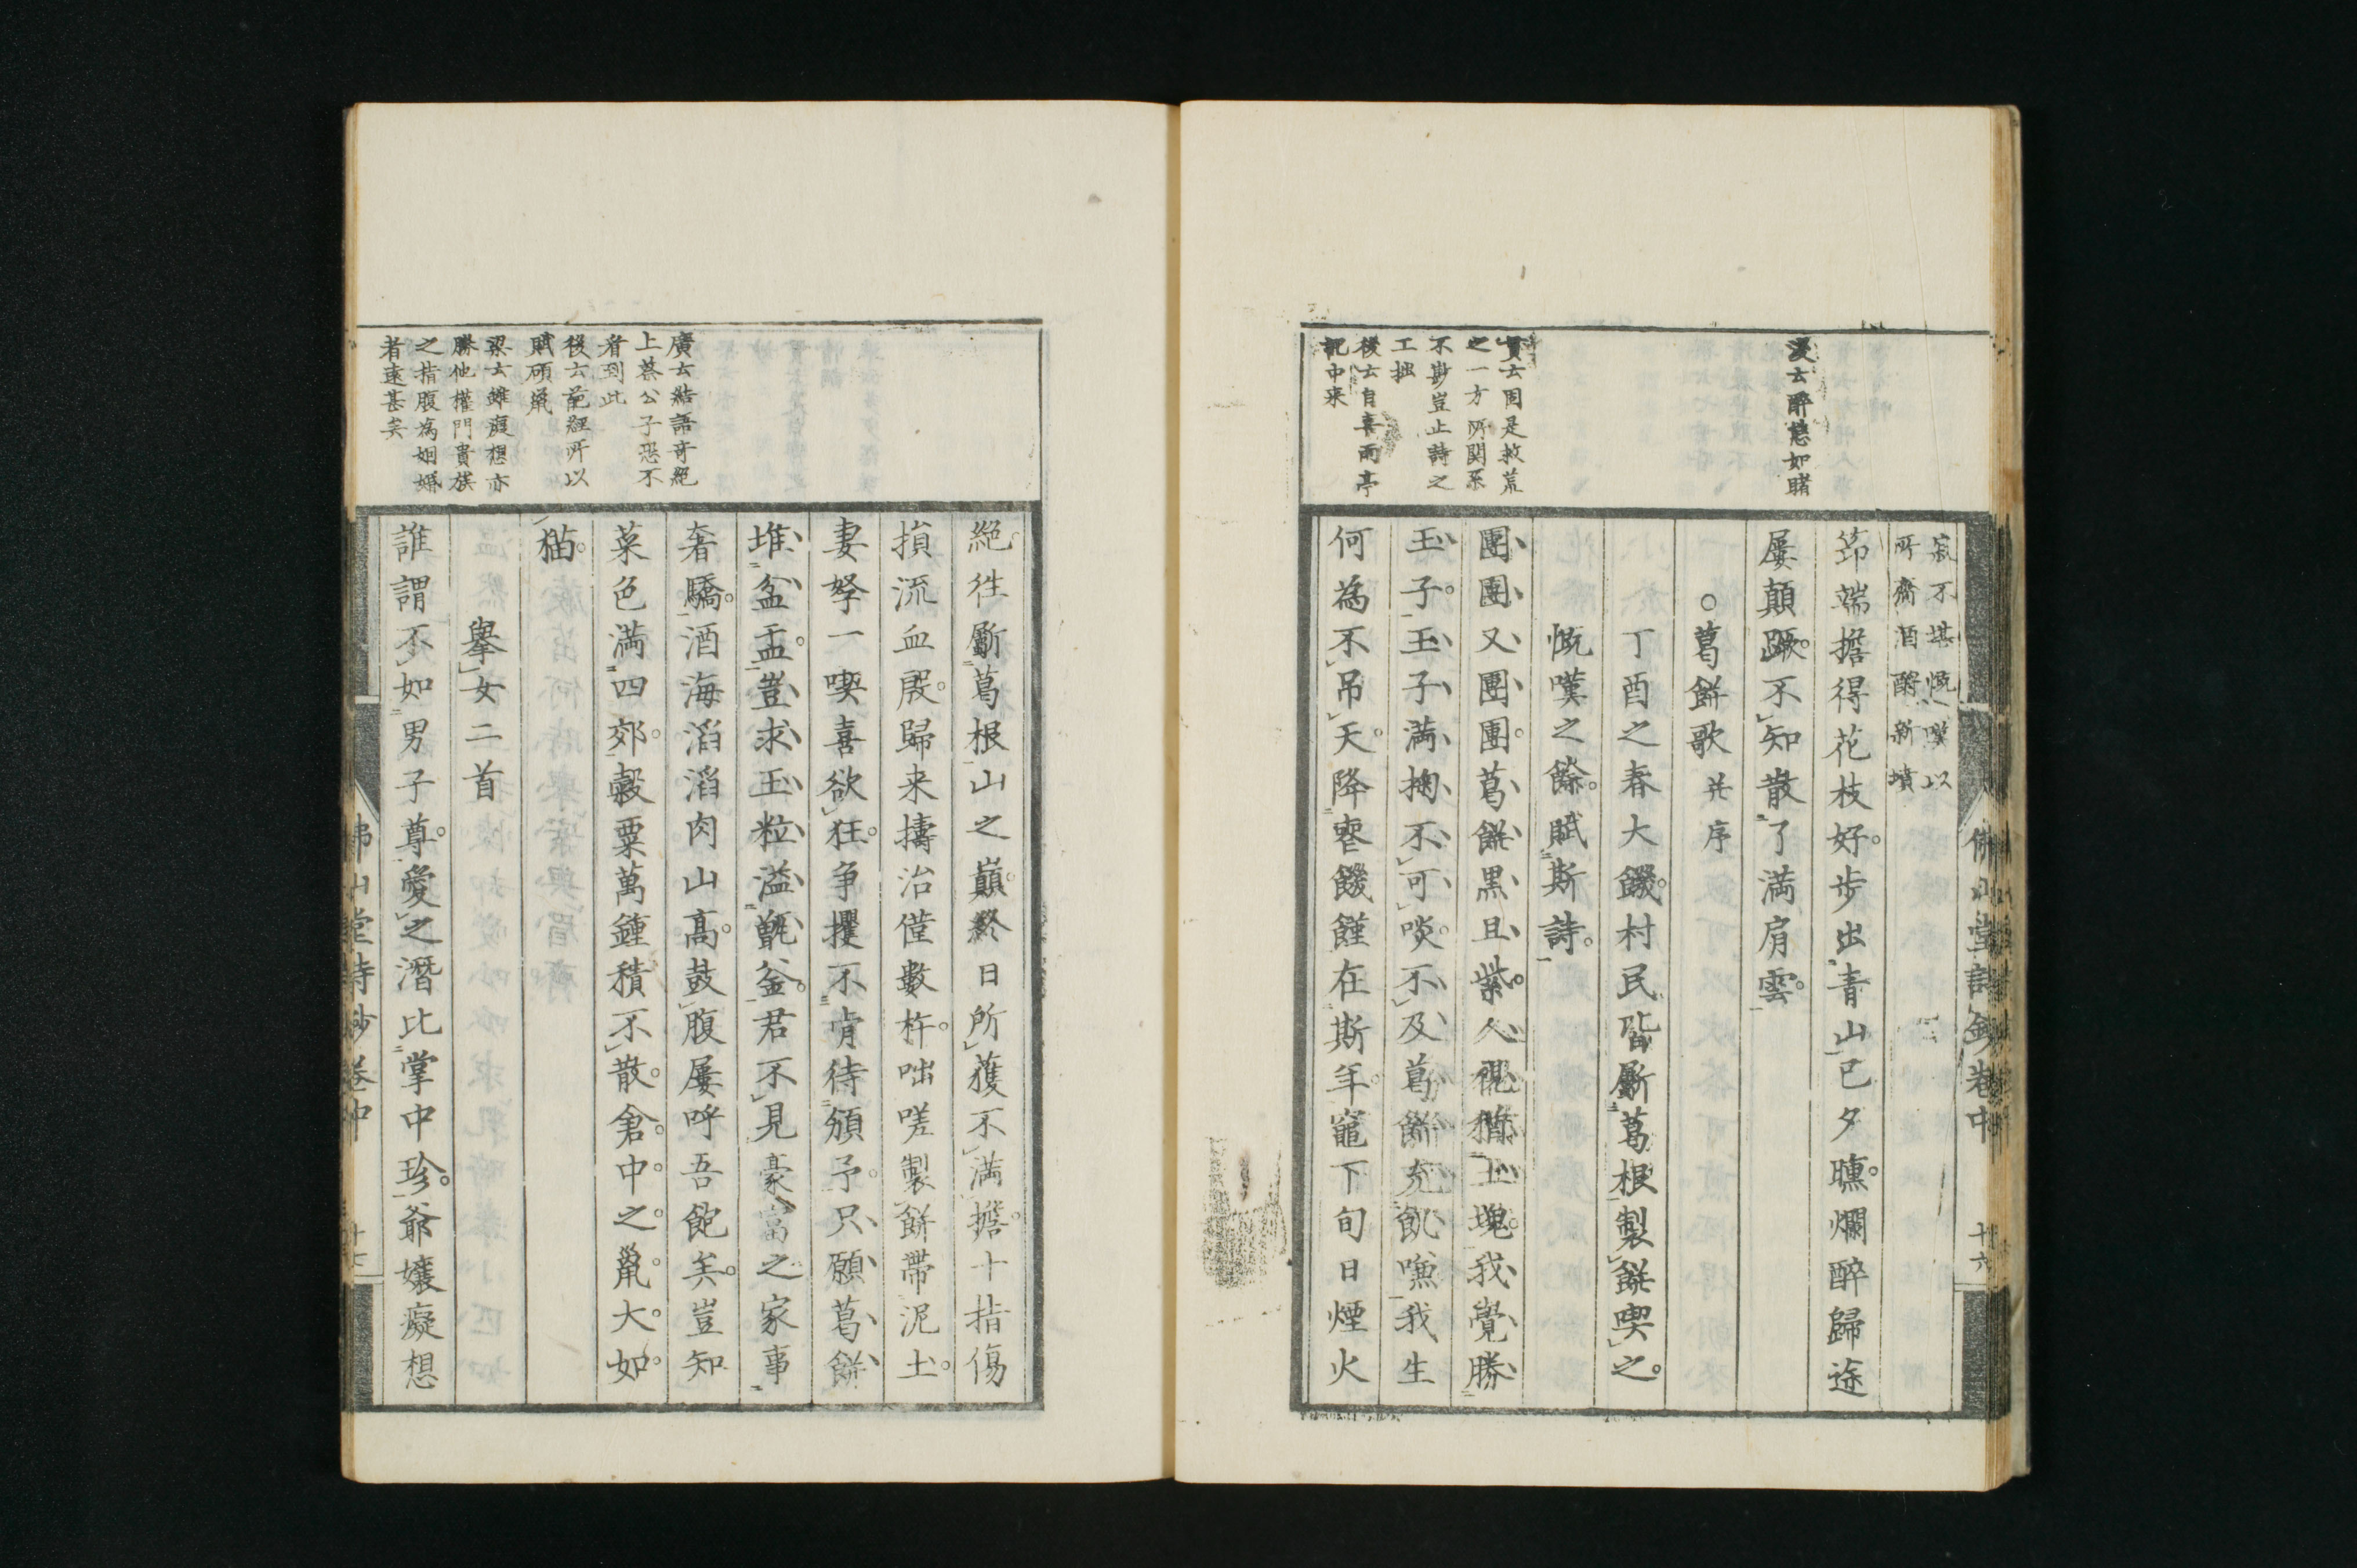 淡云醉態如睹
寶云固是救荒
之一方所関系
不尠豈止詩之
工拙
後云自喜雨亭
記中来
寂不堪慨嘆以
所齎酒酹新墳
筇端擔得花枝好歩出青山已夕曛爛醉歸途
屢顛蹶不知散了満肩雲
○葛餅歌 并序
丁酉之春大饑村民皆斸葛根製餅喫之
慨嘆之餘賦斯詩
團團又團團葛餅黒且紫人視猶土塊我覺勝
玉子玉子満掬不可啖不及葛餅充飢嗛我生
何為不吊天降窘饑饉在斯年竈下旬日煙火
佛山堂詩鈔卷中 十六
廣云結語奇絕
上蔡公子恐不
看到此
後云葩經所以
賦碩鼠
梁云雖癡想亦
勝他權門貴族
之指腹為姻婚
者遠甚矣
絕徃斸葛根山之巔終日所獲不満擔十指傷
損流血殷歸来擣治僅數杵咄嗟製餅帶泥土
妻孥一喫喜欲狂争攫不肯待頒予只願葛餅
堆盆盂豈求玉粒溢甑釜君不見豪富之家事
奢驕酒海滔滔肉山高鼓腹屢呼吾飽矣豈知
菜色満四郊穀粟萬鍾積不散倉中之鼠大如
猫
擧女二首
誰謂不如男子尊愛之潛比掌中珍爺孃癡想
佛山堂詩鈔卷中 十七